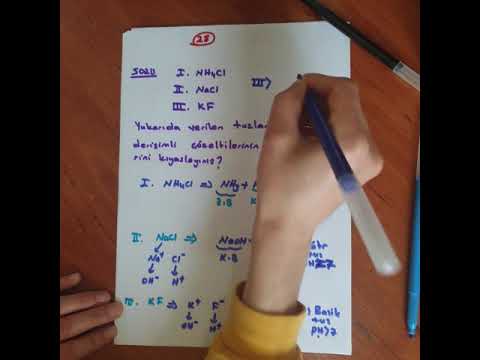 28
SORU I. NH4Cl
II. NaCl III)
III. KF
Yukarıda verilen
derişimli çözeltilerinin
rini kıyaslayınız?
I. NH4Cl ⇒ NH3 +
Z.B K.
II. NaCl ⇒ NaOH
Na+ Cl- K.B
OH- H+
III. KF ⇒ K+ F- Bazik
OH- H+ tuz
pH>7